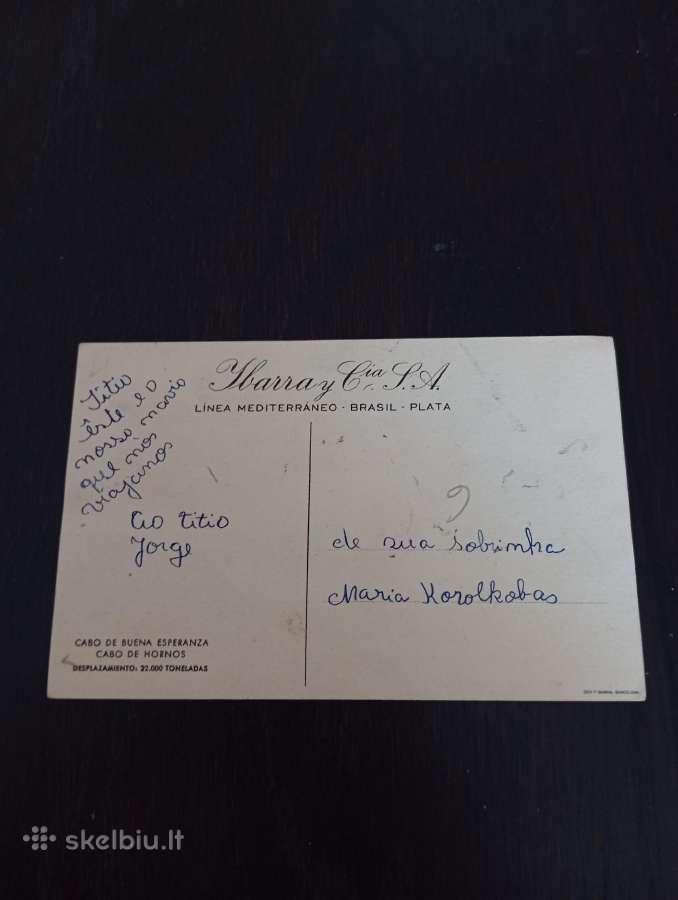 Ybarra y Cía. S.A.
LÍNEA MEDITERRÁNEO - BRASIL - PLATA
Titio
êste é o
nosso navio
que nós
viajanos
Ao titio
Jorge
de sua sobrinha
Maria Korolkobas
CABO DE BUENA ESPERANZA
CABO DE HORNOS
DESPLAZAMIENTO: 22.000 TONELADAS
skelbiu.lt